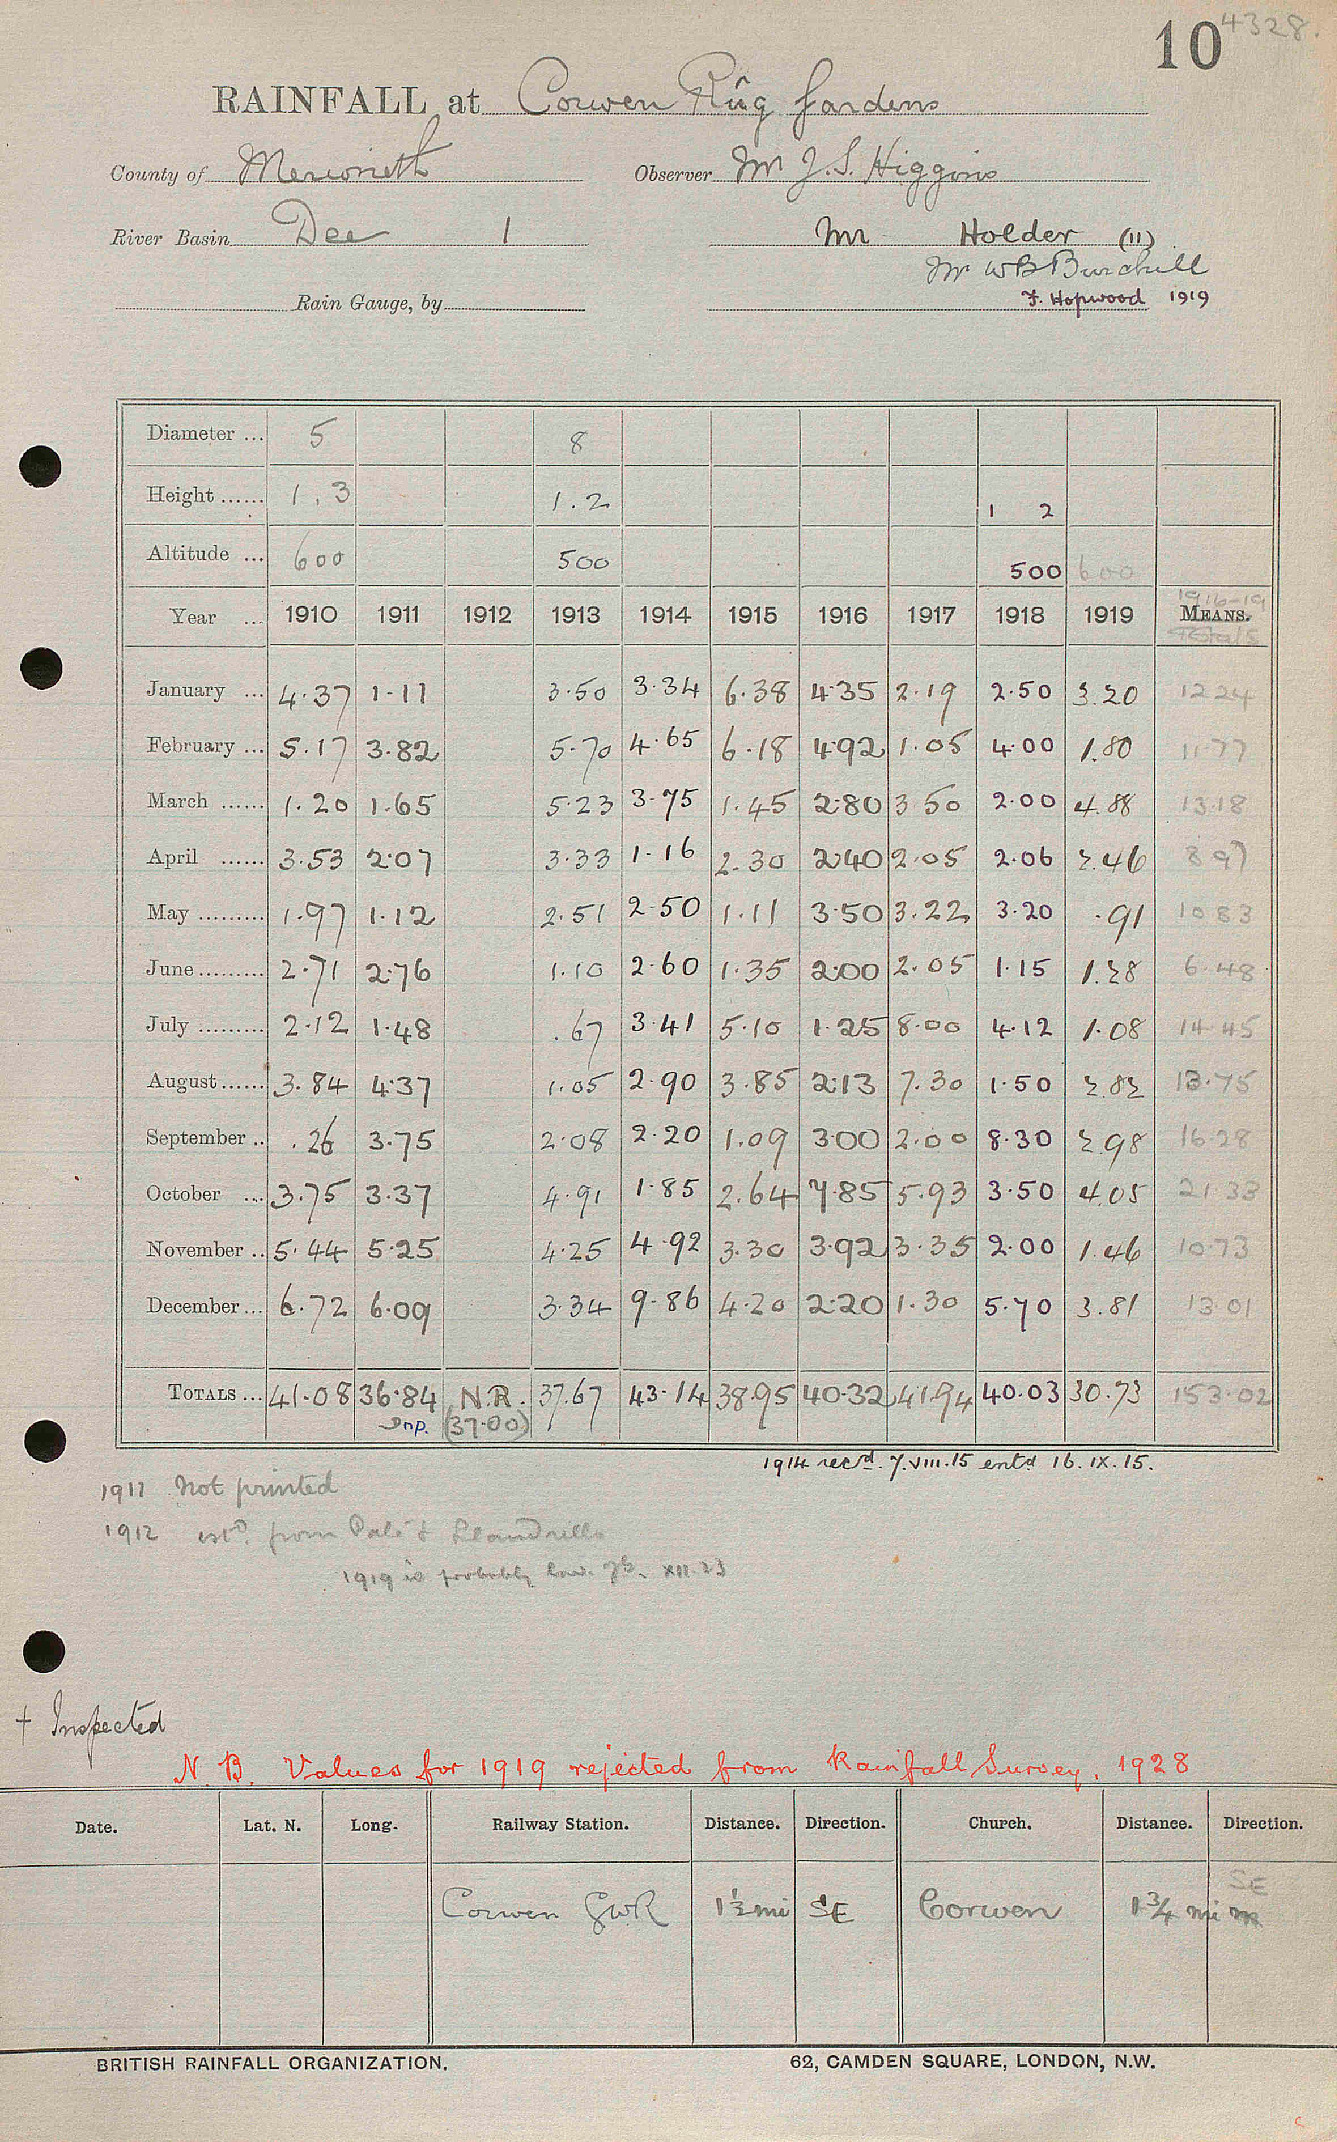 10 4328.
RAINFALL at Corwen Rûg Gardens
County of Merioneth Observer Mr J. S. Higgins
River Basin Dee 1 Mr Holder (11)
Mr W B Burchill
Rain Gauge, by F. Hopwood 1919
Diameter ... 5 8
Height ...... 1.3 1.2 1 2
Altitude ... 600 500 500 600
1916-19
Year ... 1910 1911 1912 1913 1914 1915 1916 1917 1918 1919 MEANS.
Totals
January ... 4.37 1.11 3.50 3.34 6.38 4.35 2.19 2.50 3.20 12 24
February ... 5.17 3.82 5.70 4.65 6.18 4.92 1.05 4.00 1.80 11.77
March ...... 1.20 1.65 5.23 3.75 1.45 2.80 3.50 2.00 4.88 13.18
April ...... 3.53 2.07 3.33 1.16 2.30 2.40 2.05 2.06 2.46 8 97
May ......... 1.97 1.12 2.51 2.50 1.11 3.50 3.22 3.20 .91 10 83
June ......... 2.71 2.76 1.10 2.60 1.35 2.00 2.05 1.15 1.28 6.48
July ......... 2.12 1.48 .67 3.41 5.10 1.25 8.00 4.12 1.08 14.45
August ...... 3.84 4.37 1.05 2.90 3.85 2.13 7.30 1.50 2.82 13.75
September .. .26 3.75 2.08 2.20 1.09 3.00 2.00 8.30 2.98 16.28
October ... 3.75 3.37 4.91 1.85 2.64 7.85 5.93 3.50 4.05 21.33
November .. 5.44 5.25 4.25 4.92 3.30 3.92 3.35 2.00 1.46 10.73
December ... 6.72 6.09 3.34 9.86 4.20 2.20 1.30 5.70 3.81 13.01
TOTALS ... 41.08 36.84 N.R. 37.67 43.14 38.95 40.32 41.94 40.03 30.73 153.02
Inp. (37.00)
1914 recd. 7.VIII.15 entd 16.IX.15.
1911 Not printed
1912 estd. from Palé & Llandrillo
1919 is probably low. XII.23
+ Inspected
N.B. Values for 1919 rejected from Rainfall Survey, 1928
Date. Lat. N. Long. Railway Station. Distance. Direction. Church. Distance. Direction.
SE
Corwen GWR 1½ mi SE Corwen 1¾ mi
BRITISH RAINFALL ORGANIZATION. 62, CAMDEN SQUARE, LONDON, N.W.